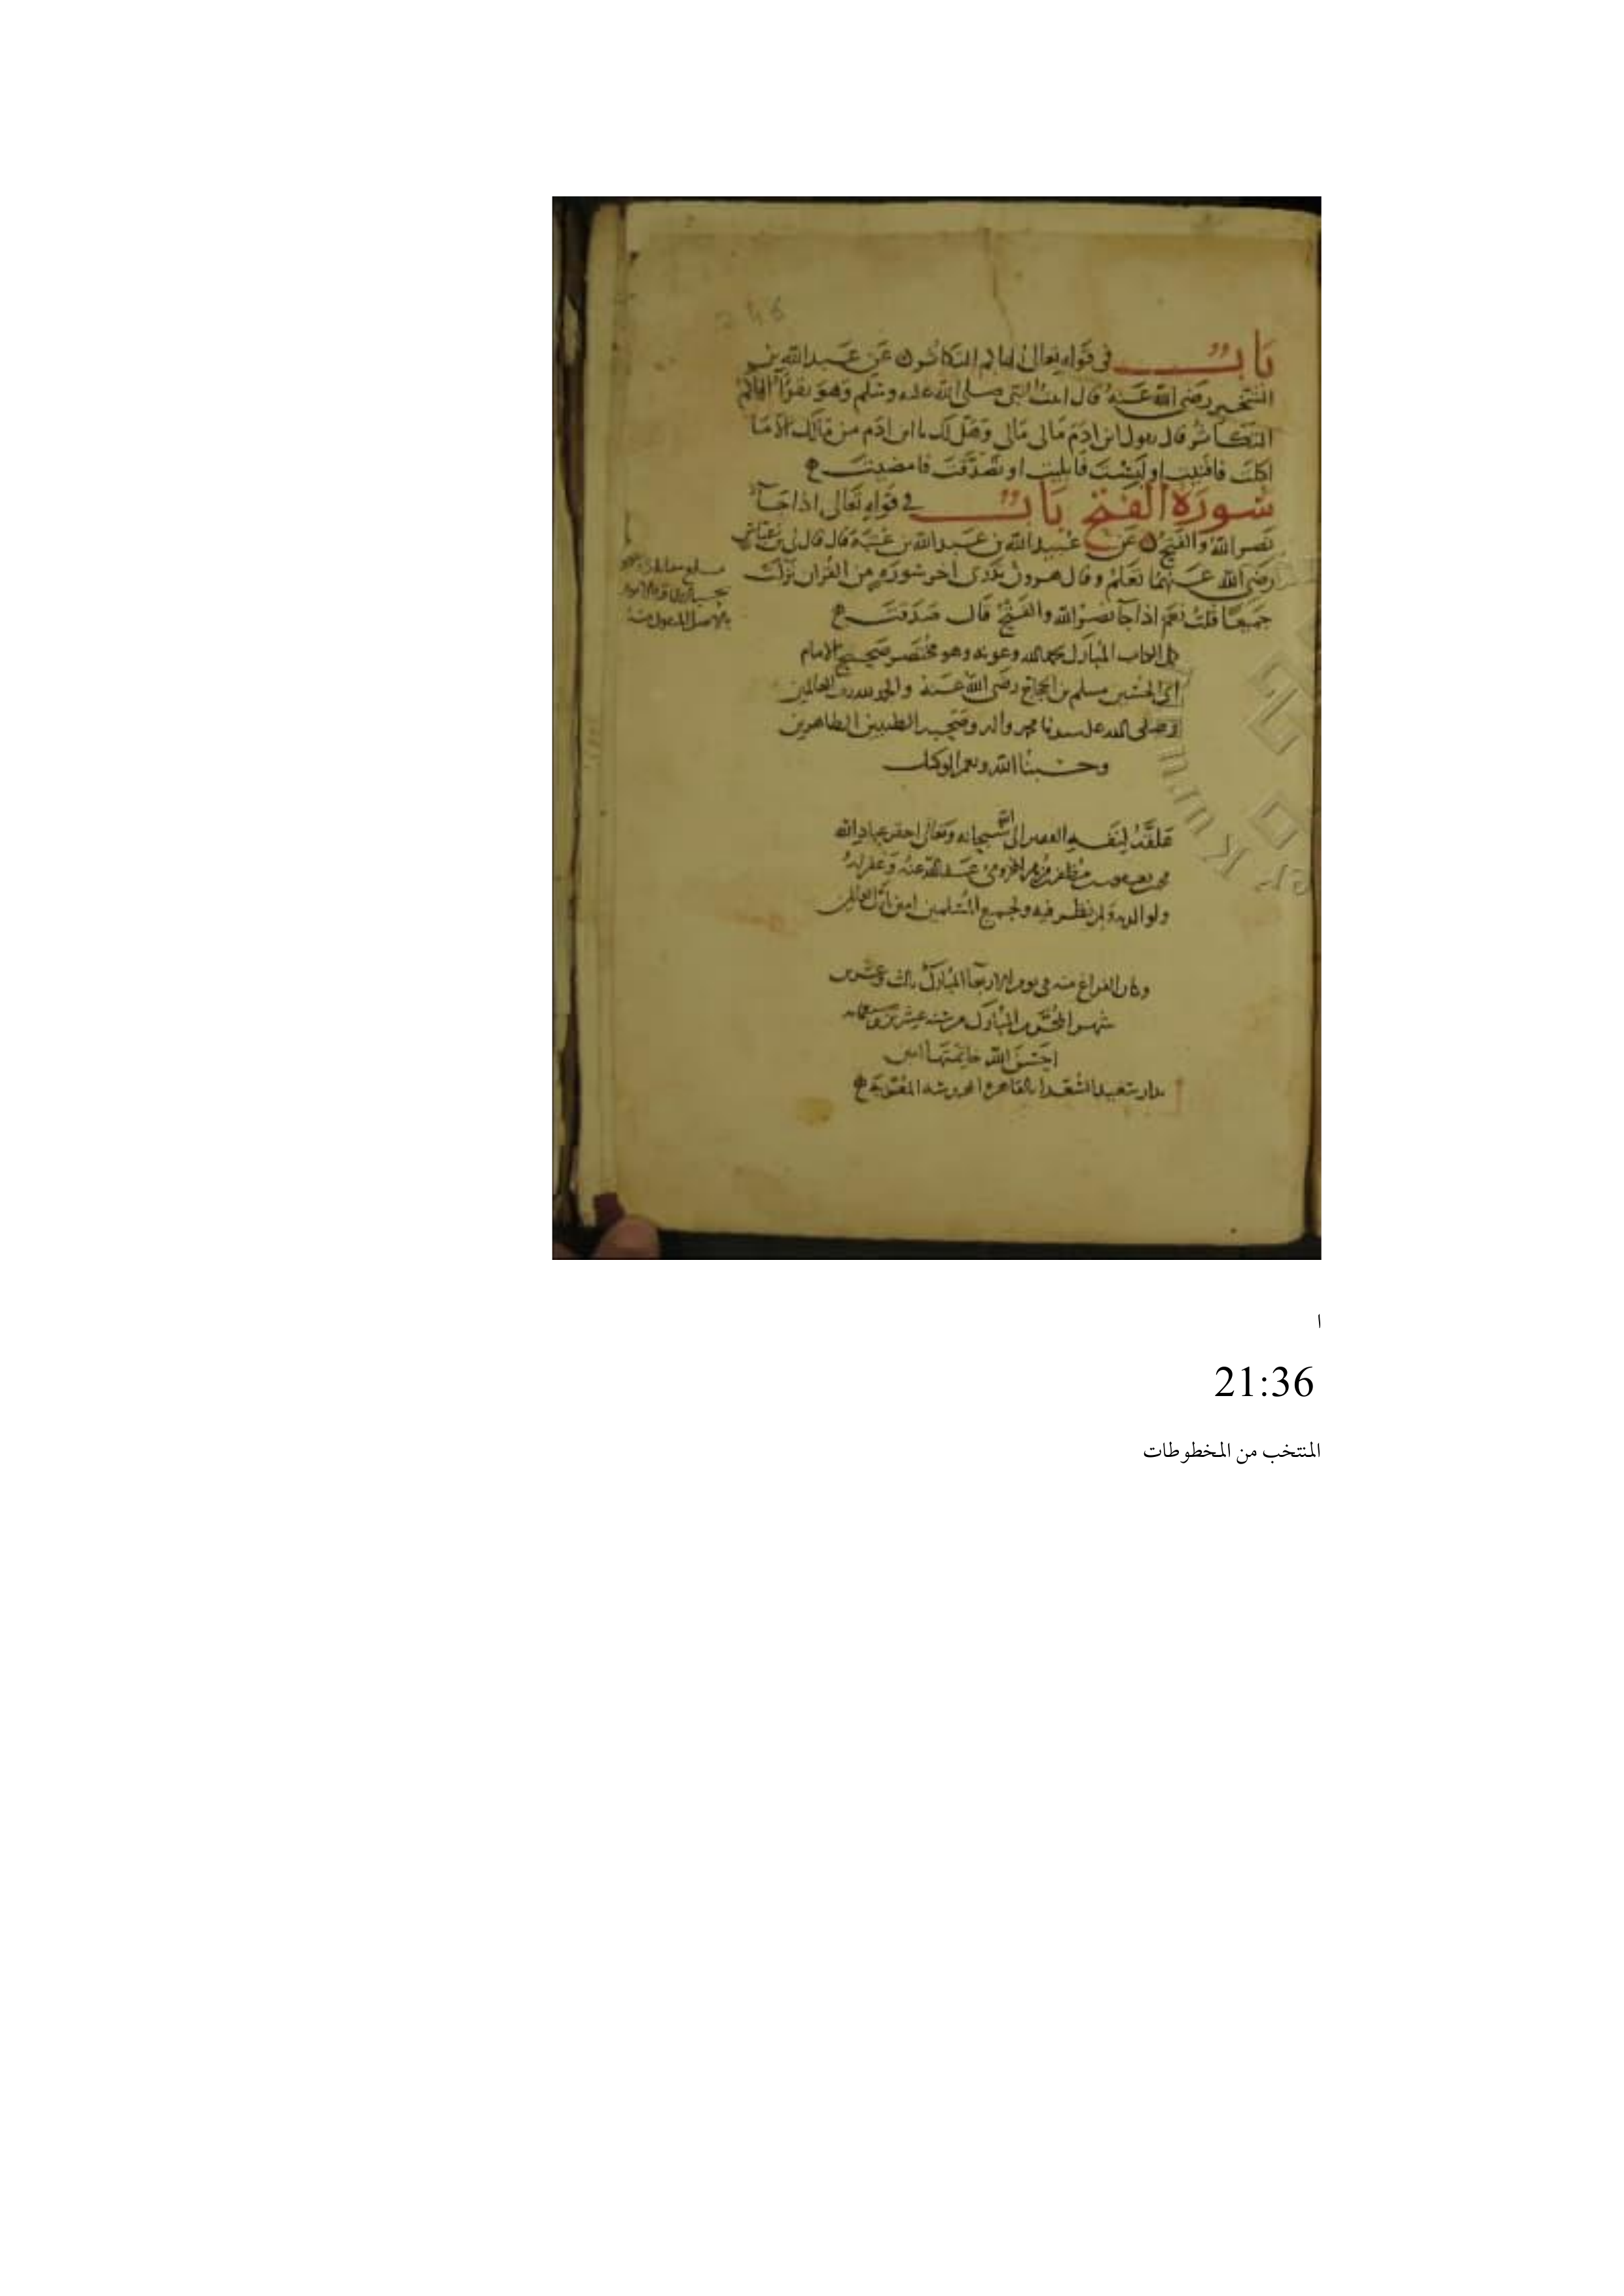 باب في قوله تعالى الهاكم التكاثر عن عبد الله بن
الشخير رضي الله عنه قال اتيت النبي صلى الله عليه وسلم وهو يقرأ الهاكم
التكاثر قال يقول ابن ادم مالي مالي وهل لك يا ابن ادم من مالك الا ما
اكلت فافنيت او لبست فابليت او تصدقت فامضيت
سورة الفتح باب في قوله تعالى اذا جاء
نصر الله والفتح عن عبيد الله بن عبد الله بن عتبة قال قال لي بن عباس
رضي الله عنهما تعلم وقال هرون تدري اخر سورة من القران نزلت
جميعا قلت نعم اذا جا نصر الله والفتح قال صدقت
الكتاب المبارك بحمد الله وعونه وهو مختصر صحيح الامام
ابي الحسين مسلم بن الحجاج رضي الله عنه والحمد لله رب العالمين
وصلى الله على سيدنا محمد واله وصحبه الطيبين الطاهرين
وحسبنا الله ونعم الوكيل
علقه لنفسه الفقير الى الله سبحانه وتعالى احقر عباد الله
محمد مظفر عنه وغفر له
ولوالديه ولمن نظر فيه ولجميع المسلمين امين يا رب العالمين
وكان الفراغ منه في يوم الاربعا المبارك ثالث وعشرين
شهر المحرم المبارك من سنه عشرين
احسن الله خاتمتها امين
بدار سعيد السعدا بالقاهرة المحروسة المعزية
بلغ مقابلة
بالاصل المنقول منه
246
ا
21:36
المنتخب من المخطوطات